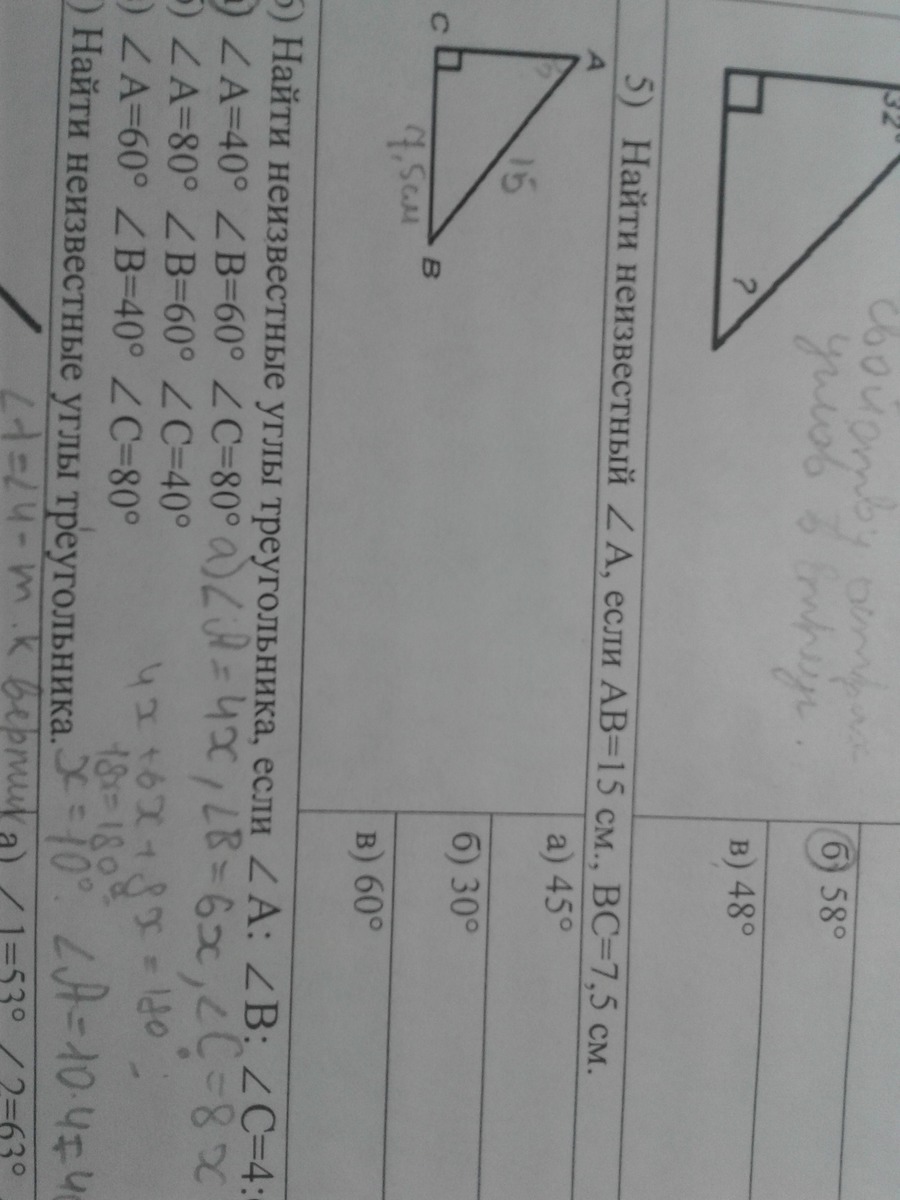 32°
?
свойству острых
углов в
б) 58°
в) 48°
5) Найти неизвестный ∠А, если АВ=15 см., ВС=7,5 см.
A
15
C
7,5 см
B
а) 45°
б) 30°
в) 60°
6) Найти неизвестные углы треугольника, если ∠А: ∠В: ∠С=4:
) ∠А=40° ∠В=60° ∠С=80° а) ∠А = 4х, ∠В = 6х, ∠С = 8х
) ∠А=80° ∠В=60° ∠С=40°
) ∠А=60° ∠В=40° ∠С=80°
4х + 6х + 8х = 180°
18х=180°
х = 10°. ∠А = 10·4=
) Найти неизвестные углы треугольника.
∠1=∠4 - т.к вертик
а) ∠1=53° ∠2=63°